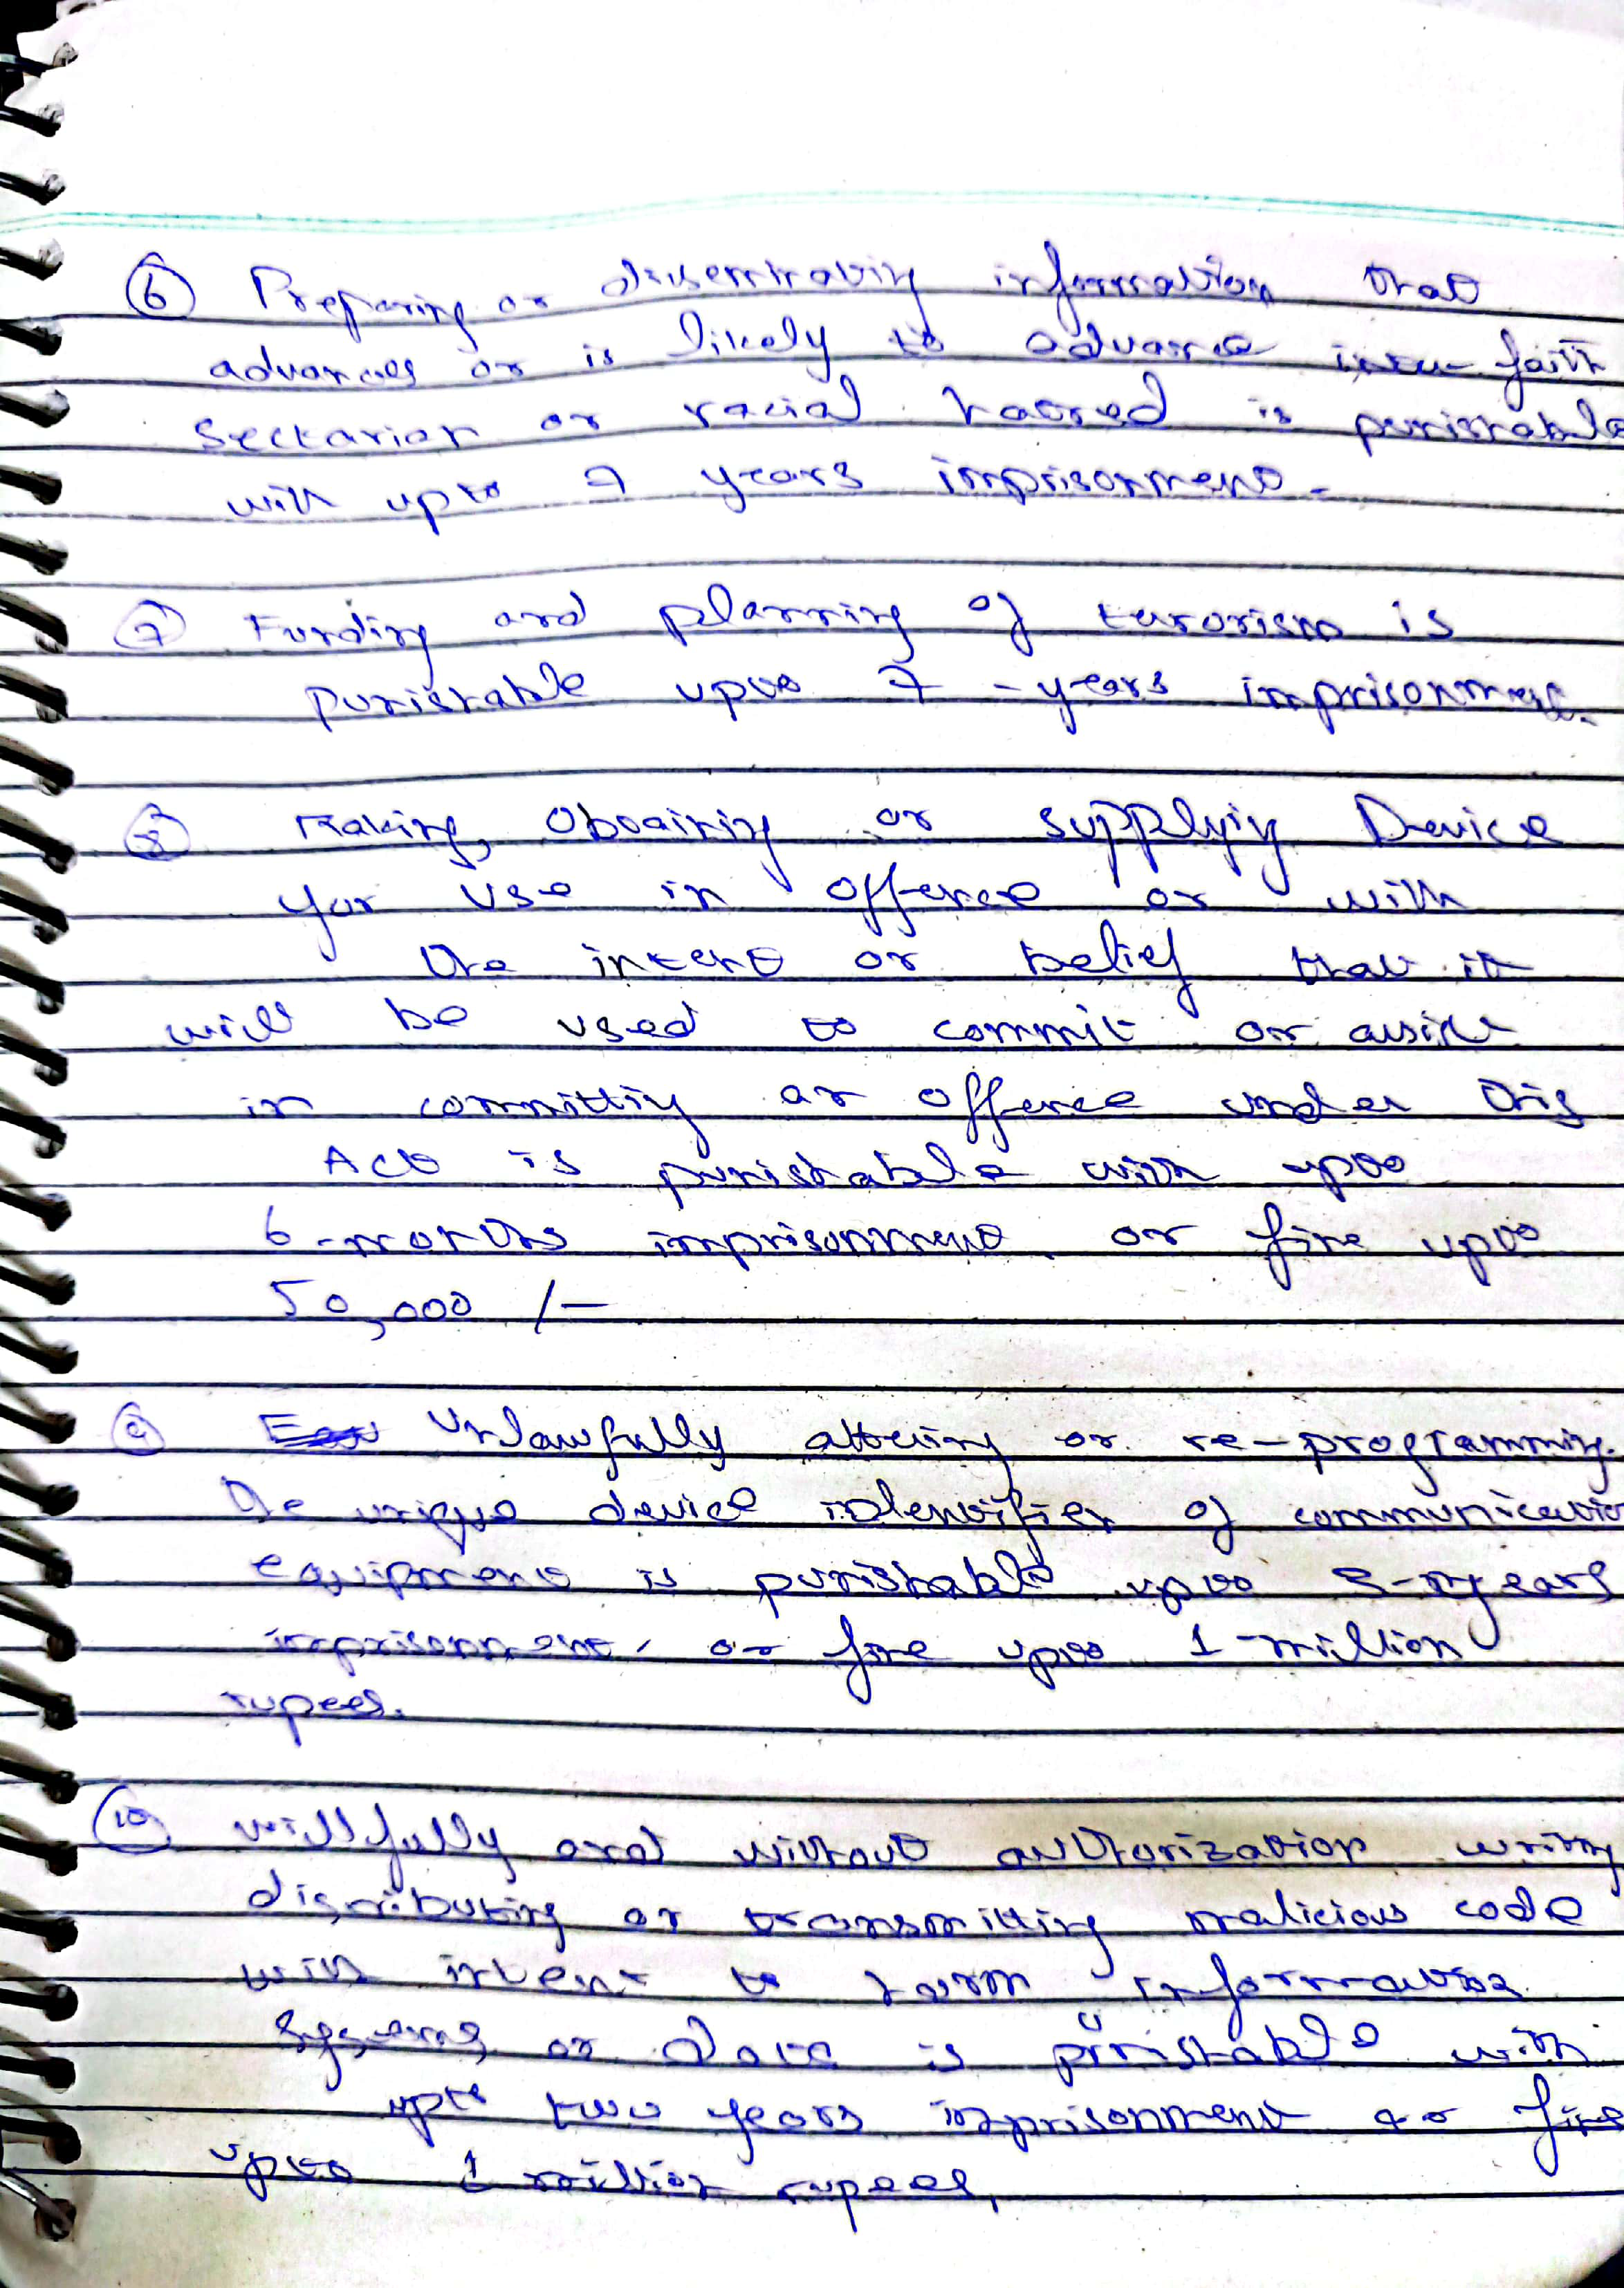 6 Preparing or disseminating information that
advances or is likely to advance inter faith
sectarian or racial hatred is punishable
with upto 7 years imprisonment.
7 Funding and planning of terorism is
punishable upto 7 - years imprisonment.
8 Making, Obtaining or supplying Device
for use in offence or with
the intent or belief that it
will be used to commit or assist
in committing an offence under this
Act is punishable with upto
6-months imprisonment or fine upto
50,000 /-
9 Unlawfully altering or re-programming
the unique device identifier of communication
equipment is punishable upto 3-years
imprisonment or fine upto 1-million
rupees.
10 willfully and without authorization writing
distributing or transmitting malicious code
with intent to harm information
systems or data is punishable with
upto two years imprisonment or fine
upto 1 million rupees,